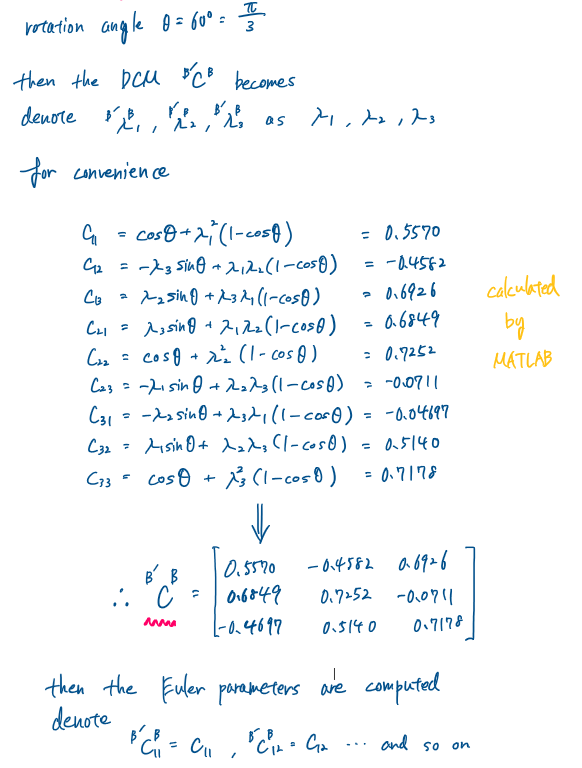 rotation angle θ = 60° = π/3
then the DCM ᴮ′Cᴮ becomes
denote ᴮ′λ₁ᴮ, ᴮ′λ₂ᴮ, ᴮ′λ₃ᴮ as λ₁, λ₂, λ₃
for convenience
C₁₁ = cosθ + λ₁²(1-cosθ) = 0.5570
C₁₂ = -λ₃ sinθ + λ₁λ₂(1-cosθ) = -0.4582
C₁₃ = λ₂sinθ + λ₃λ₁(1-cosθ) = 0.6926
C₂₁ = λ₃sinθ + λ₁λ₂(1-cosθ) = 0.6849
C₂₂ = cosθ + λ₂²(1-cosθ) = 0.7252
C₂₃ = -λ₁sinθ + λ₂λ₃(1-cosθ) = -0.0711
C₃₁ = -λ₂sinθ + λ₃λ₁(1-cosθ) = -0.04697
C₃₂ = λ₁sinθ + λ₂λ₃(1-cosθ) = 0.5140
C₃₃ = cosθ + λ₃²(1-cosθ) = 0.7178
calculated
by
MATLAB
⇓
0.5570 -0.4582 0.6926
∴ ᴮ′Cᴮ = 0.6849 0.7252 -0.0711
-0.4697 0.5140 0.7178
then the Euler parameters are computed
denote
ᴮ′C₁₁ᴮ = C₁₁, ᴮ′C₁₂ᴮ = C₁₂ ... and so on